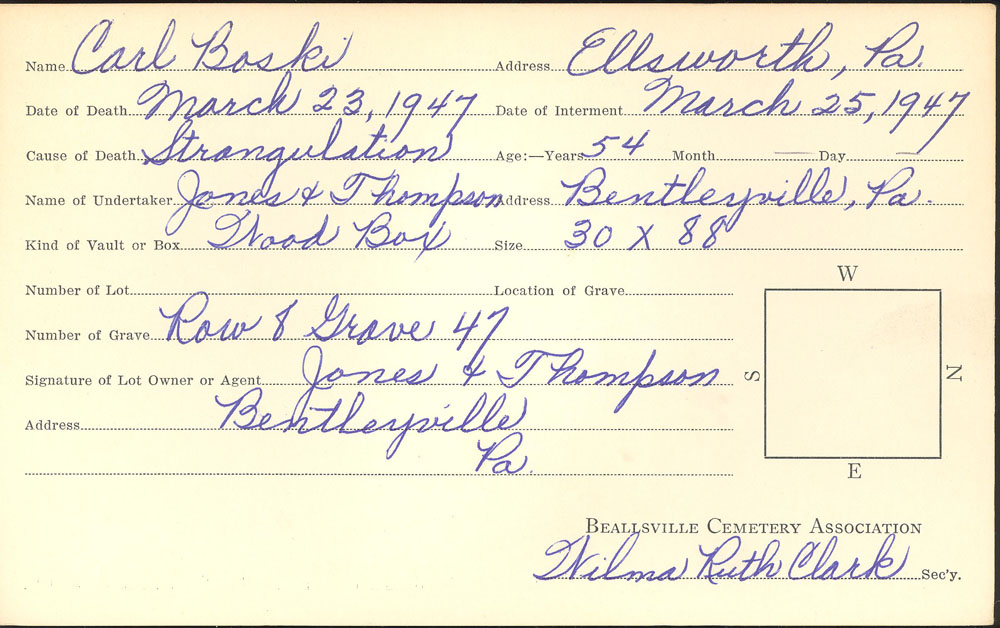 Name Carl Boski Address Ellsworth, Pa.
Date of Death March 23, 1947 Date of Interment March 25, 1947
Cause of Death Strangulation Age:—Years 54 Month — Day —
Name of Undertaker Jones & Thompson Address Bentleyville, Pa.
Kind of Vault or Box Wood Box Size 30 x 88
W
Number of Lot Location of Grave
Number of Grave Row 8 Grave 47
S N
Signature of Lot Owner or Agent Jones & Thompson
Address Bentleyville
Pa.
E
BEALLSVILLE CEMETERY ASSOCIATION
Wilma Ruth Clark Sec'y.